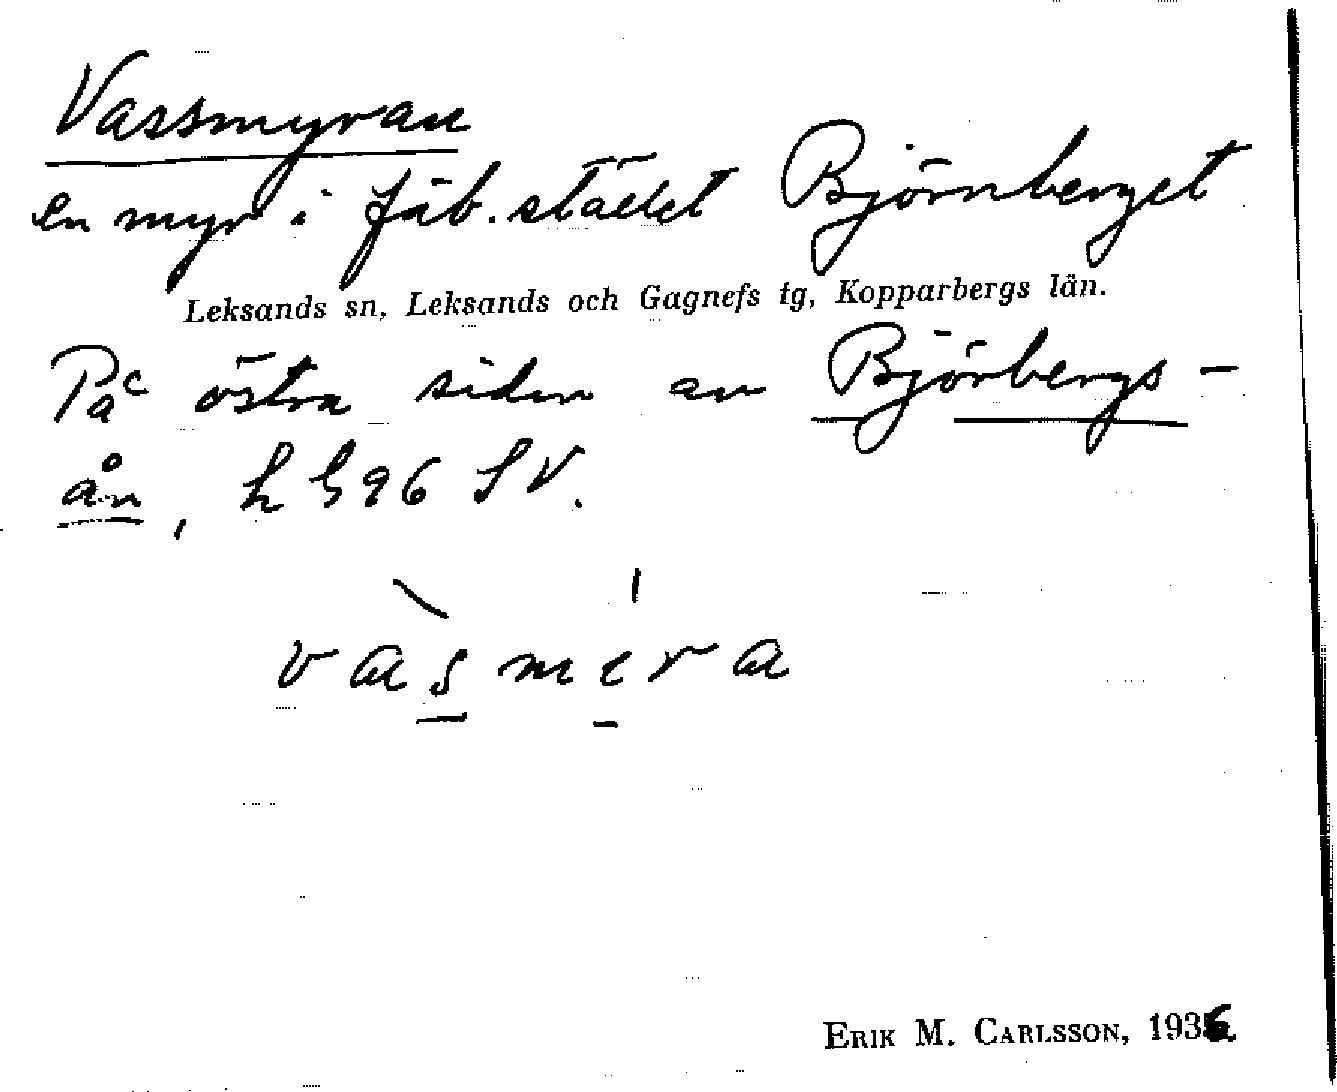 Vassmyran
en myr i fäb.stället Björnberget
Leksands sn, Leksands och Gagnefs tg, Kopparbergs län.
På östra sidan av Björbergs-
ån, SV.
vàsmira
ERIK M. CARLSSON, 1936